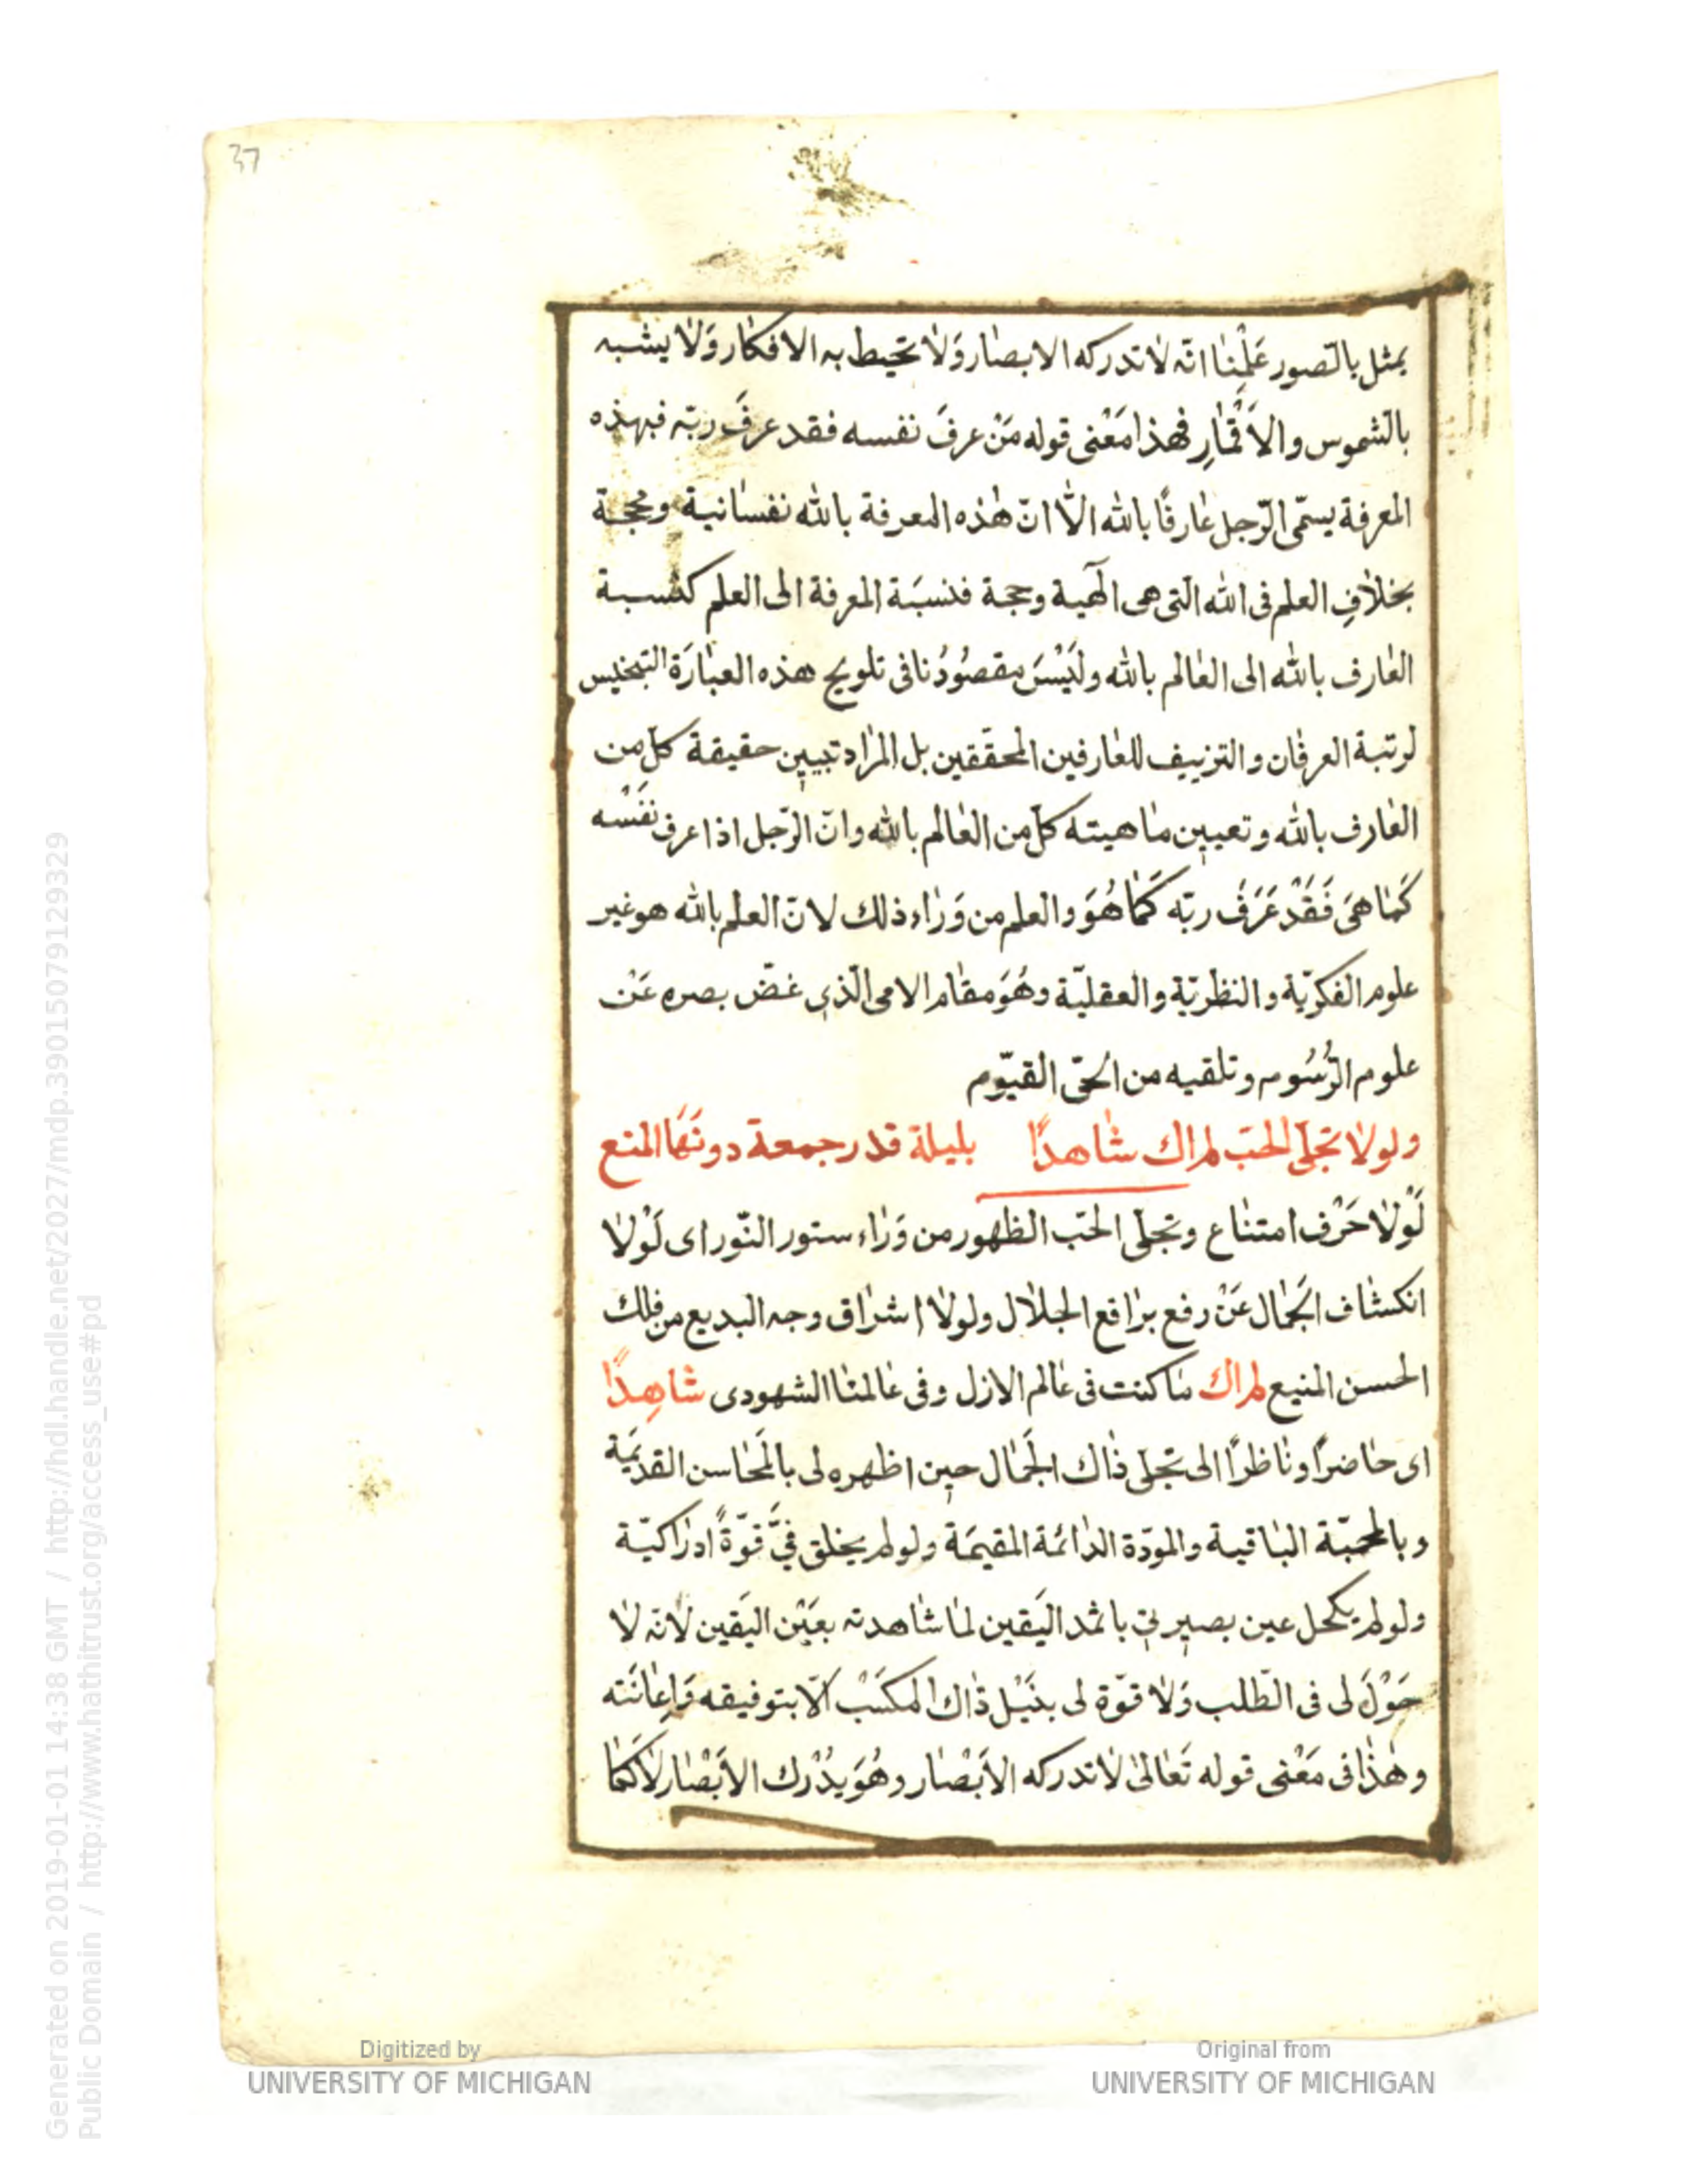 37
يمثل بالصور عَلِمْنا انّه لا تدركه الابصار وَلا تحيط به الافكار وَلا يشبه
بالشموس والاَقْمارِ فهذا مَعْنى قوله مَنْ عرفَ نفسه فقد عرفَ ربّه فبهذه
المعرفة يسمّى الرّجل عارفًا بالله الّا انّ هذه المعرفة بالله نفسانية وحجة
بخلافِ العلم فى الله التى هى الٓهية وحجة فنسبَة المعرفة الى العلم كنسبة
العارف بالله الى العالم بالله وليَسْسَ مقصُودُنا فى تلويح هذه العبارَة التبخيس
لرتبة العرفان والتزييف للعارفين المحققين بل المراد تبيين حقيقة كلّ من
العارف بالله وتعيين ماهيته كلّ من العالم بالله وانّ الرّجل اذا عرف نفَسْه
كَما هىَ فَقَدْ عَرَفَ ربّه كَما هُوَ والعلم من وَراء ذلك لانّ العلم بالله هو غير
علوم الفكريّة والنظريّة والعقليّة وهُوَ مقام الامى الّذى غضّ بصره عَنْ
علوم الرّسُوم وتلقيه من الحىّ القيّوم
ولولا تجلّى الحبّ لم اك شاهدًا بليلة قدر جمعة دونَهَا المنع
لَوْلا حَرْف امتناع وتجلّى الحبّ الظهور من وَراء ستور النّور اى لَوْلا
انكشاف الجَمال عَنْ رفع براقع الجلال ولولا اشراق وجه البديع من فلك
الحسن المنيع لم اك ما كنت فى عالم الازل وفى عالمنا الشهودى شاهِدًا
اى حاضرًا وناظرًا الى تجلى ذاك الجَمال حين اظهره لى بالمَحاسن القديمَة
وبالمحبّة الباقية والمودّة الدائمة المقيمَة ولو لم يخلق فىَّ قوّةً ادراكيّة
ولو لم يكحل عين بصيرتى باثمد اليَقين لما شاهدته بعَيْن اليَقين لانّه لا
حَوْلَ لى فى الطّلب وَلا قوّة لى بنَيْل ذاك المكسَبْ الّا بتوفيقه وَاِعانَته
وهذا فى مَعْنى قوله تَعالى لا تدركه الاَبْصار وهُوَ يدُرْك الاَبْصار لا كَما
Generated on 2019-01-01 14:38 GMT / http://hdl.handle.net/2027/mdp.39015079129329
Public Domain / http://www.hathitrust.org/access_use#pd
Digitized by
UNIVERSITY OF MICHIGAN
Original from
UNIVERSITY OF MICHIGAN